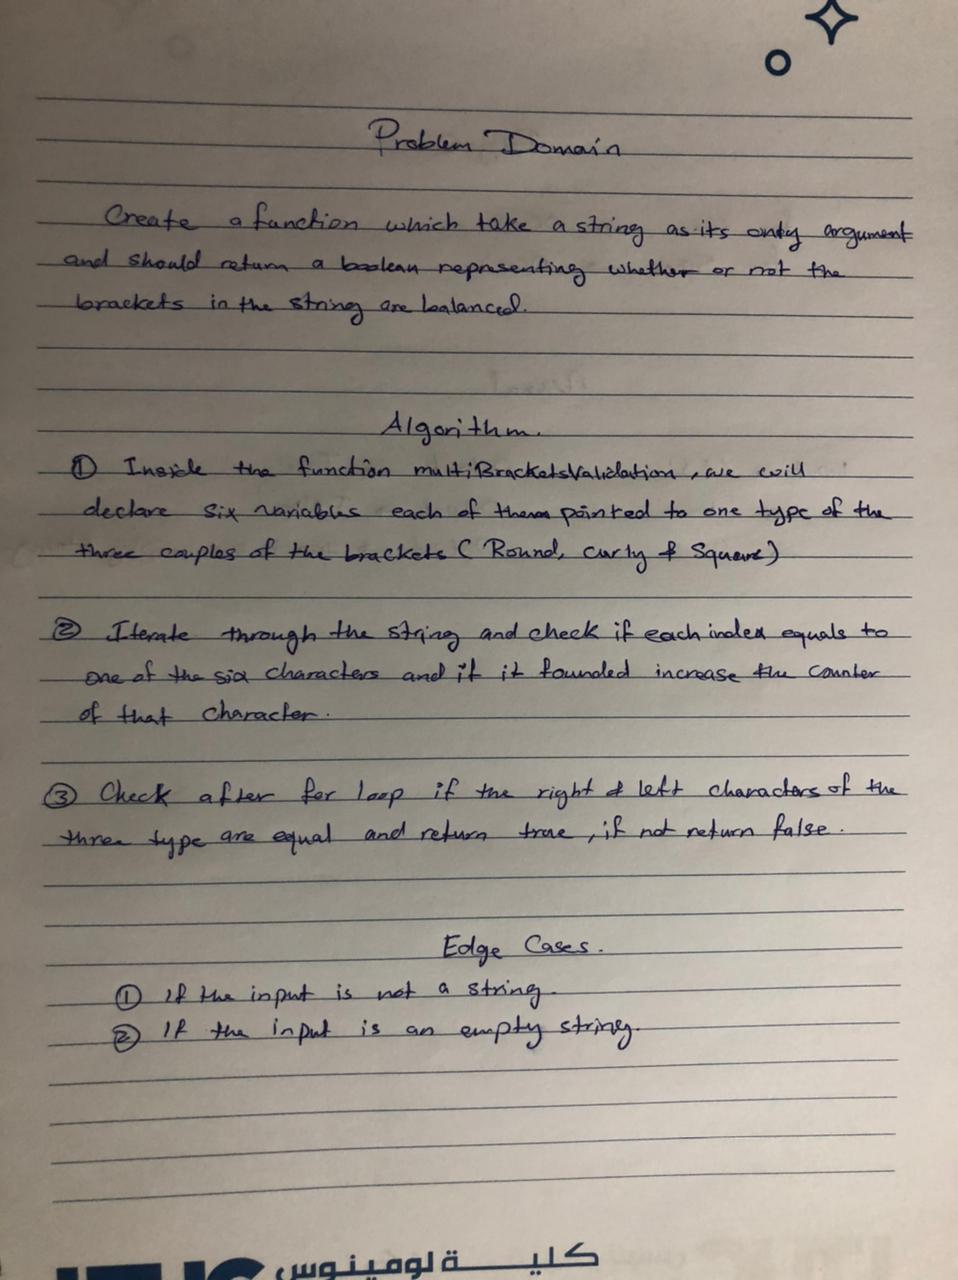 Problem Domain
Create a function which take a string as its only argument
and should return a boolean representing whether or not the
brackets in the string are balanced.
Algorithm.
① Inside the function multiBracketsValidation, we will
declare six variables each of them pointed to one type of the
three couples of the brackets ( Round, curly & Square)
② Iterate through the string and check if each index equals to
one of the six characters and if it founded increase the counter
of that character.
③ Check after for loop if the right & left characters of the
three type are equal and return true, if not return false.
Edge Cases.
① If the input is not a string.
② If the input is an empty string.
كليـــــة لومينوس